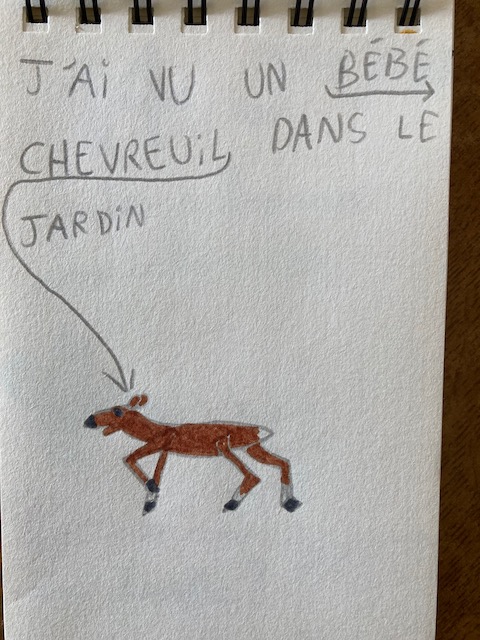 J'Ai VU UN BÉBÉ
CHEVREUiL DANS LE
JARDiN